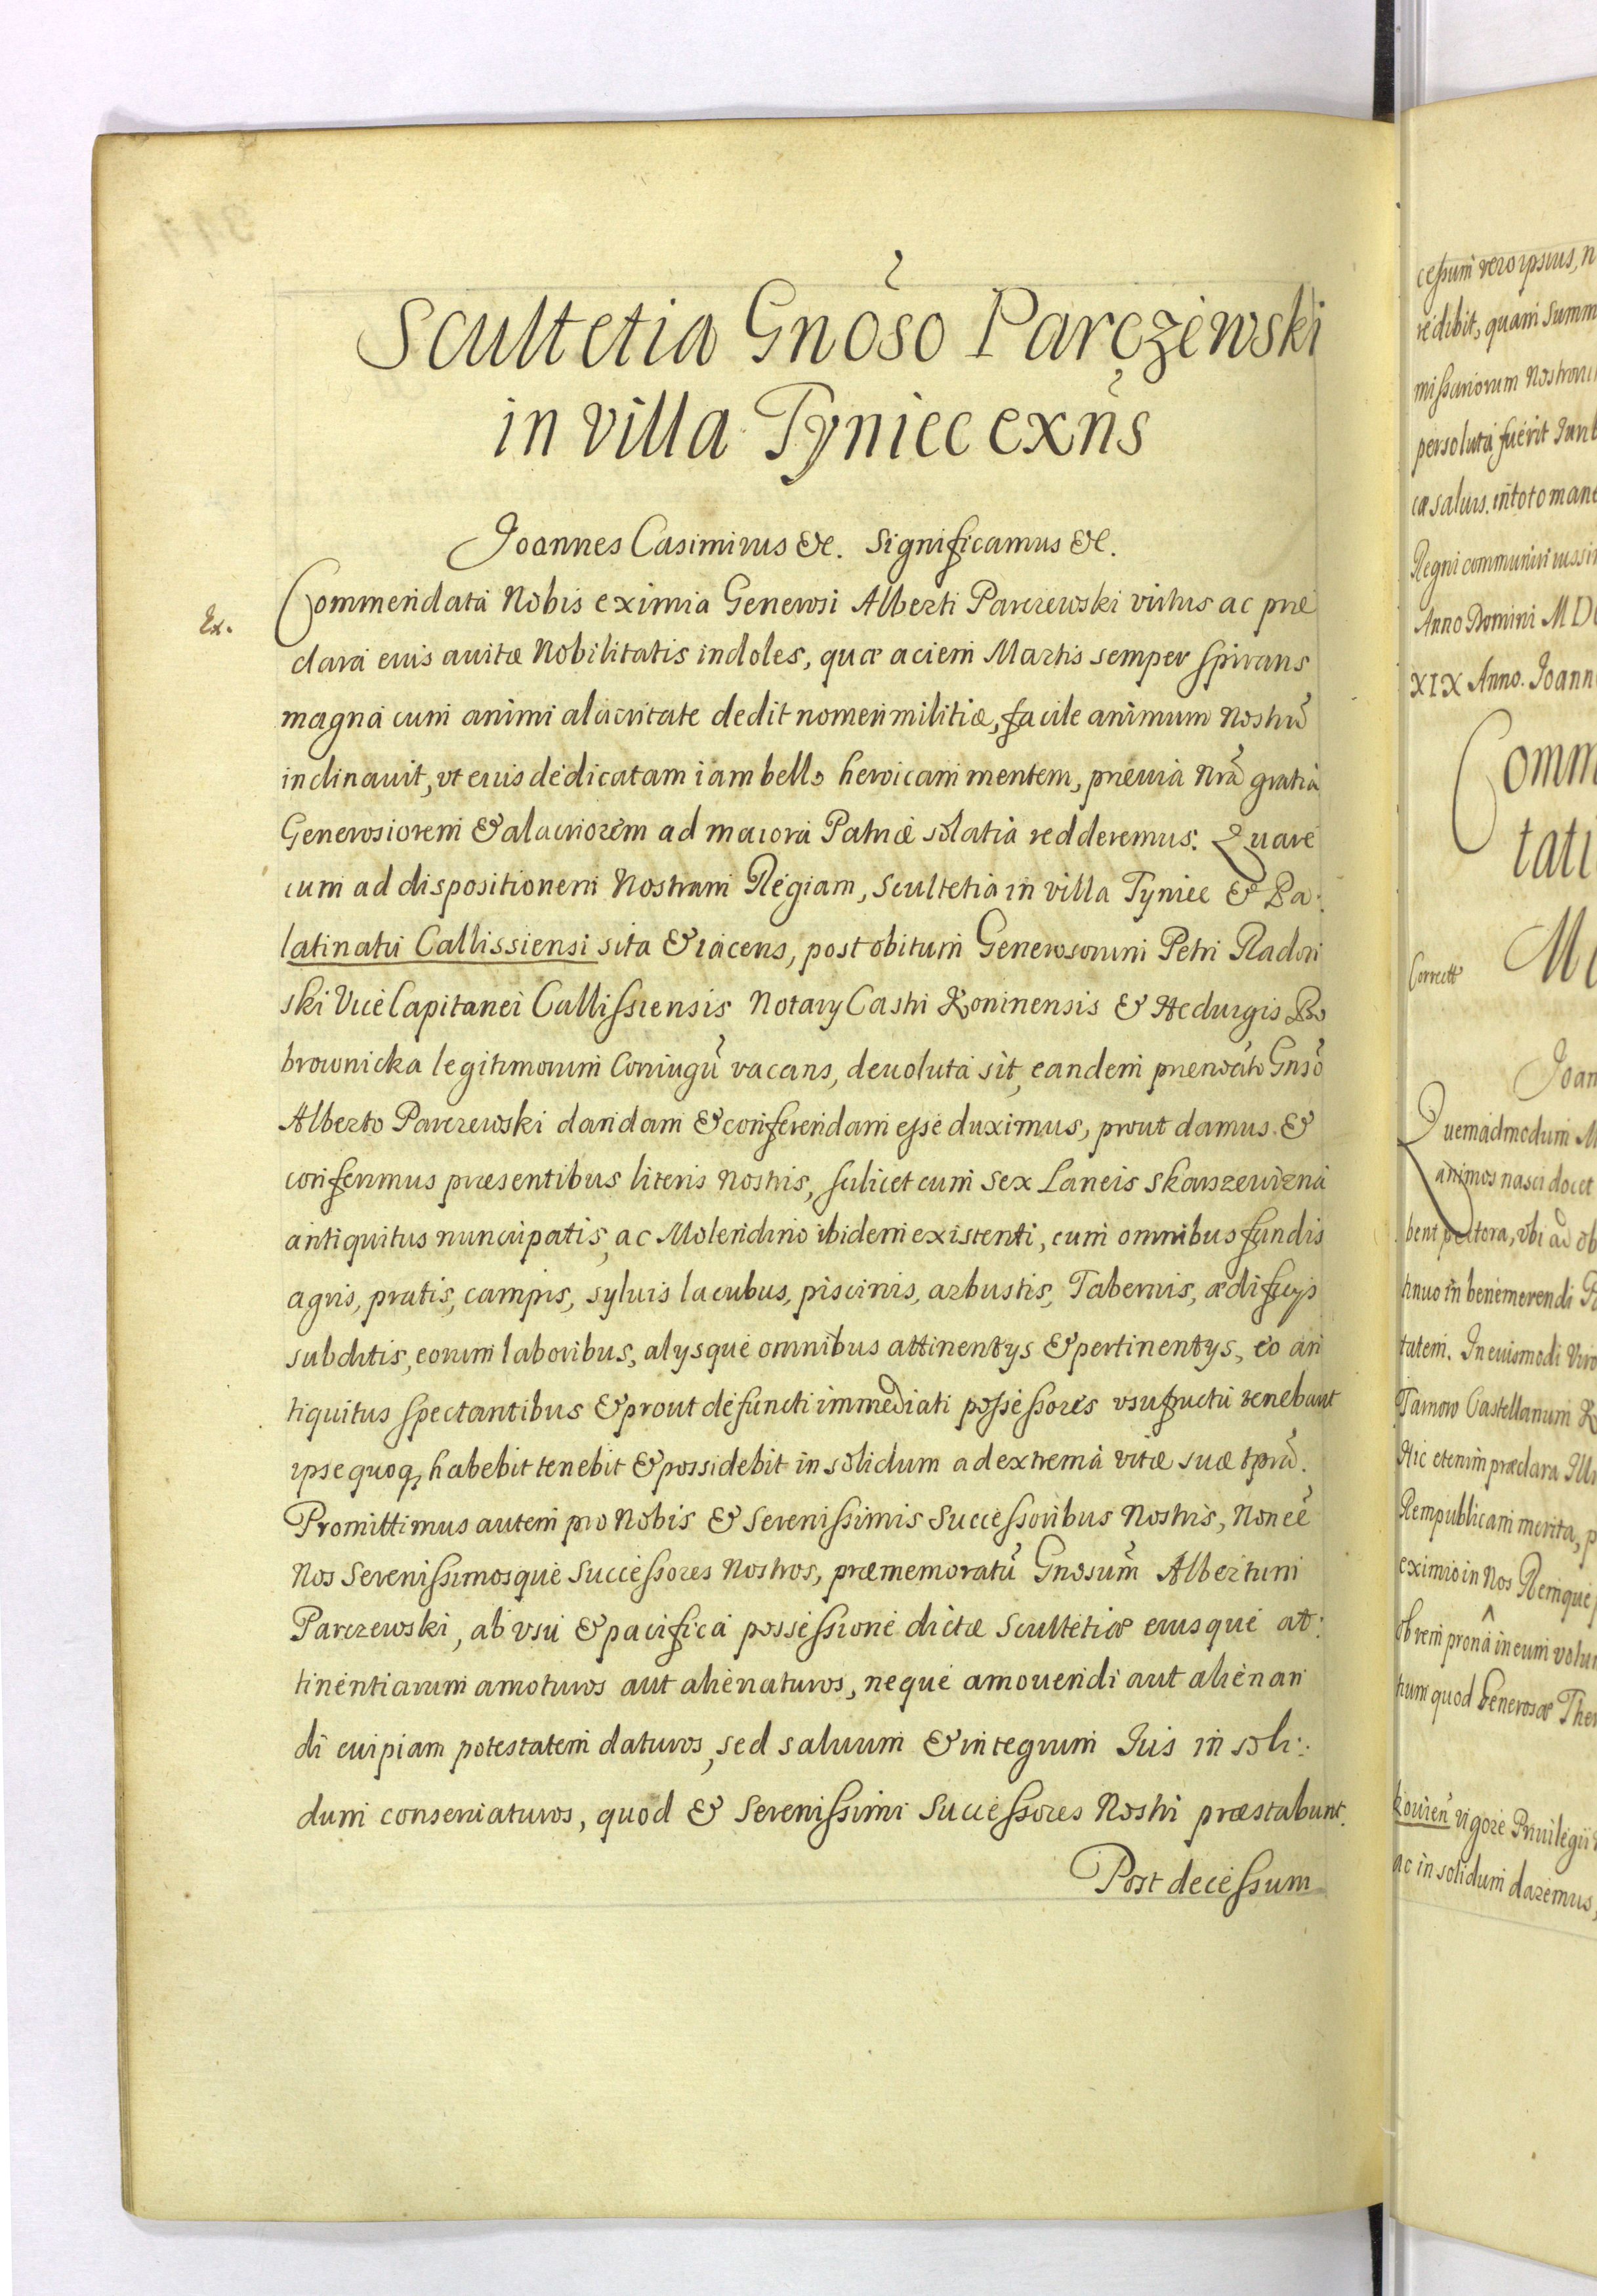 Scultetia Gnoso Parczewski
in villa Tyniec exns
Joannes Casimirus &c. Significamus &c.
Ex.
Commendata Nobis eximia Generosi Alberti Parczewski virtus ac præ
clara eius auitæ Nobilitatis indoles, quæ aciem Martis semper spirans
magna cum animi alacritate dedit nomen militiæ, facile animum Nostrũ
inclinauit, vt eius dedicatam iam bello heroicam mentem, præuia Nrã gratia
Generosiorem & alacriorem ad maiora Patriæ solatia redderemus. Quare
cum ad dispositionem Nostram Regiam, Scultetia in villa Tyniec & Pa:
latinatu Callissiensi sita & iacens, post obitum Generosorum Petri Radon
ski Vice Capitanei Callissiensis Notary Castri Koninensis & Hedurgis Bo
brownicka legitimorum Coniugũ vacans, deuoluta sit, eandem prænoĩato Gnsõ
Alberto Parczewski dandam & conferendam esse duximus, prout damus &
conferimus præsentibus literis Nostris, scilicet cum sex Laneis Skarszewizna
antiquitus nuncupatis, ac Molendino ibidem existenti, cum omnibus fundis
agris, pratis, campis, syluis lacubus, piscinis, arbustis, Tabernis, ædificys
subditis, eorum laboribus, alysque omnibus attinentys & pertinentys, eo an
tiquitus spectantibus & prout defuncti immediati possessores vsufructu tenebant
ipse quoq, habebit tenebit & possidebit in solidum ad extrema vitæ suæ tprã.
Promittimus autem pro Nobis & Serenissimis Successoribus Nostris, Non eẽ
Nos Serenissimosque Successores Nostros, præmemoratũ Gnosum Albertum
Parczewski, ab vsu & pacifica possessione dictæ Scultetiæ eiusque at:
tinentiarum amoturos aut alienaturos, neque amouendi aut alienan
di cuipiam potestatem daturos, sed saluum & integrum Ius in soli:
dum conseruaturos, quod & Serenissimi Successores Nostri præstabunt.
Post decessum
cessum vero ipsius, n
redibit, quam Summ
missariorum Nostroru
persoluta fuerit Iurib
cæ saluis. in toto mane
Regni communiri iussim
Anno Domini MD
XIX Anno. Joann
Comm
tati
Correctt
Joan
Quemadmodum M
animos nasci docet
bent pectora, vbi ad ob
tinuo in benemerendi
tutem. In eiusmodi Viro
Tarnow Castellanum K
Hic etenim præclara Illu
Rempublicam merita, p
eximio in Nos Remque
ob rem prona in eum volun
tum quod Generosæ The
kouien vigore Priuilegii
ac in solidum daremus,